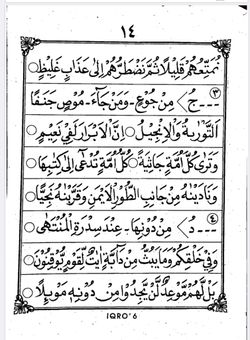 ١٤
نُمَتِّعُهُمْ قَلِيلًا ثُمَّ نَضْطَرُّهُمْ إِلَىٰ عَذَابٍ غَلِيظٍ
٣
ـــ جٌ › مِنْ جُوْعٍ - وَمَنْ جَآءَ - مُوْصٍ جَنَفًا
التَّوْرٰىةَ وَالْاِنْجِيْلَ ○ اِنَّ الْاَبْرَارَ لَفِيْ نَعِيْمٍ
وَتَرٰى كُلَّ اُمَّةٍ جَاثِيَةً ○ كُلُّ اُمَّةٍ تُدْعٰٓى اِلٰى كِتٰبِهَا
وَنَادَيْنٰهُ مِنْ جَانِبِ الطُّوْرِ الْاَيْمَنِ وَقَرَّبْنٰهُ نَجِيًّا
٤
ـــ دٌ › مِنْ دُوْنِهَا - عِنْدَ سِدْرَةِ الْمُنْتَهٰى
وَفِيْ خَلْقِكُمْ وَمَا يَبُثُّ مِنْ دَآبَّةٍ اٰيٰتٌ لِّقَوْمٍ يُّوْقِنُوْنَ ○
بَلْ لَّهُمْ مَّوْعِدٌ لَّنْ يَّجِدُوْا مِنْ دُوْنِهٖ مَوْئِلًا ○
IQRO' 6